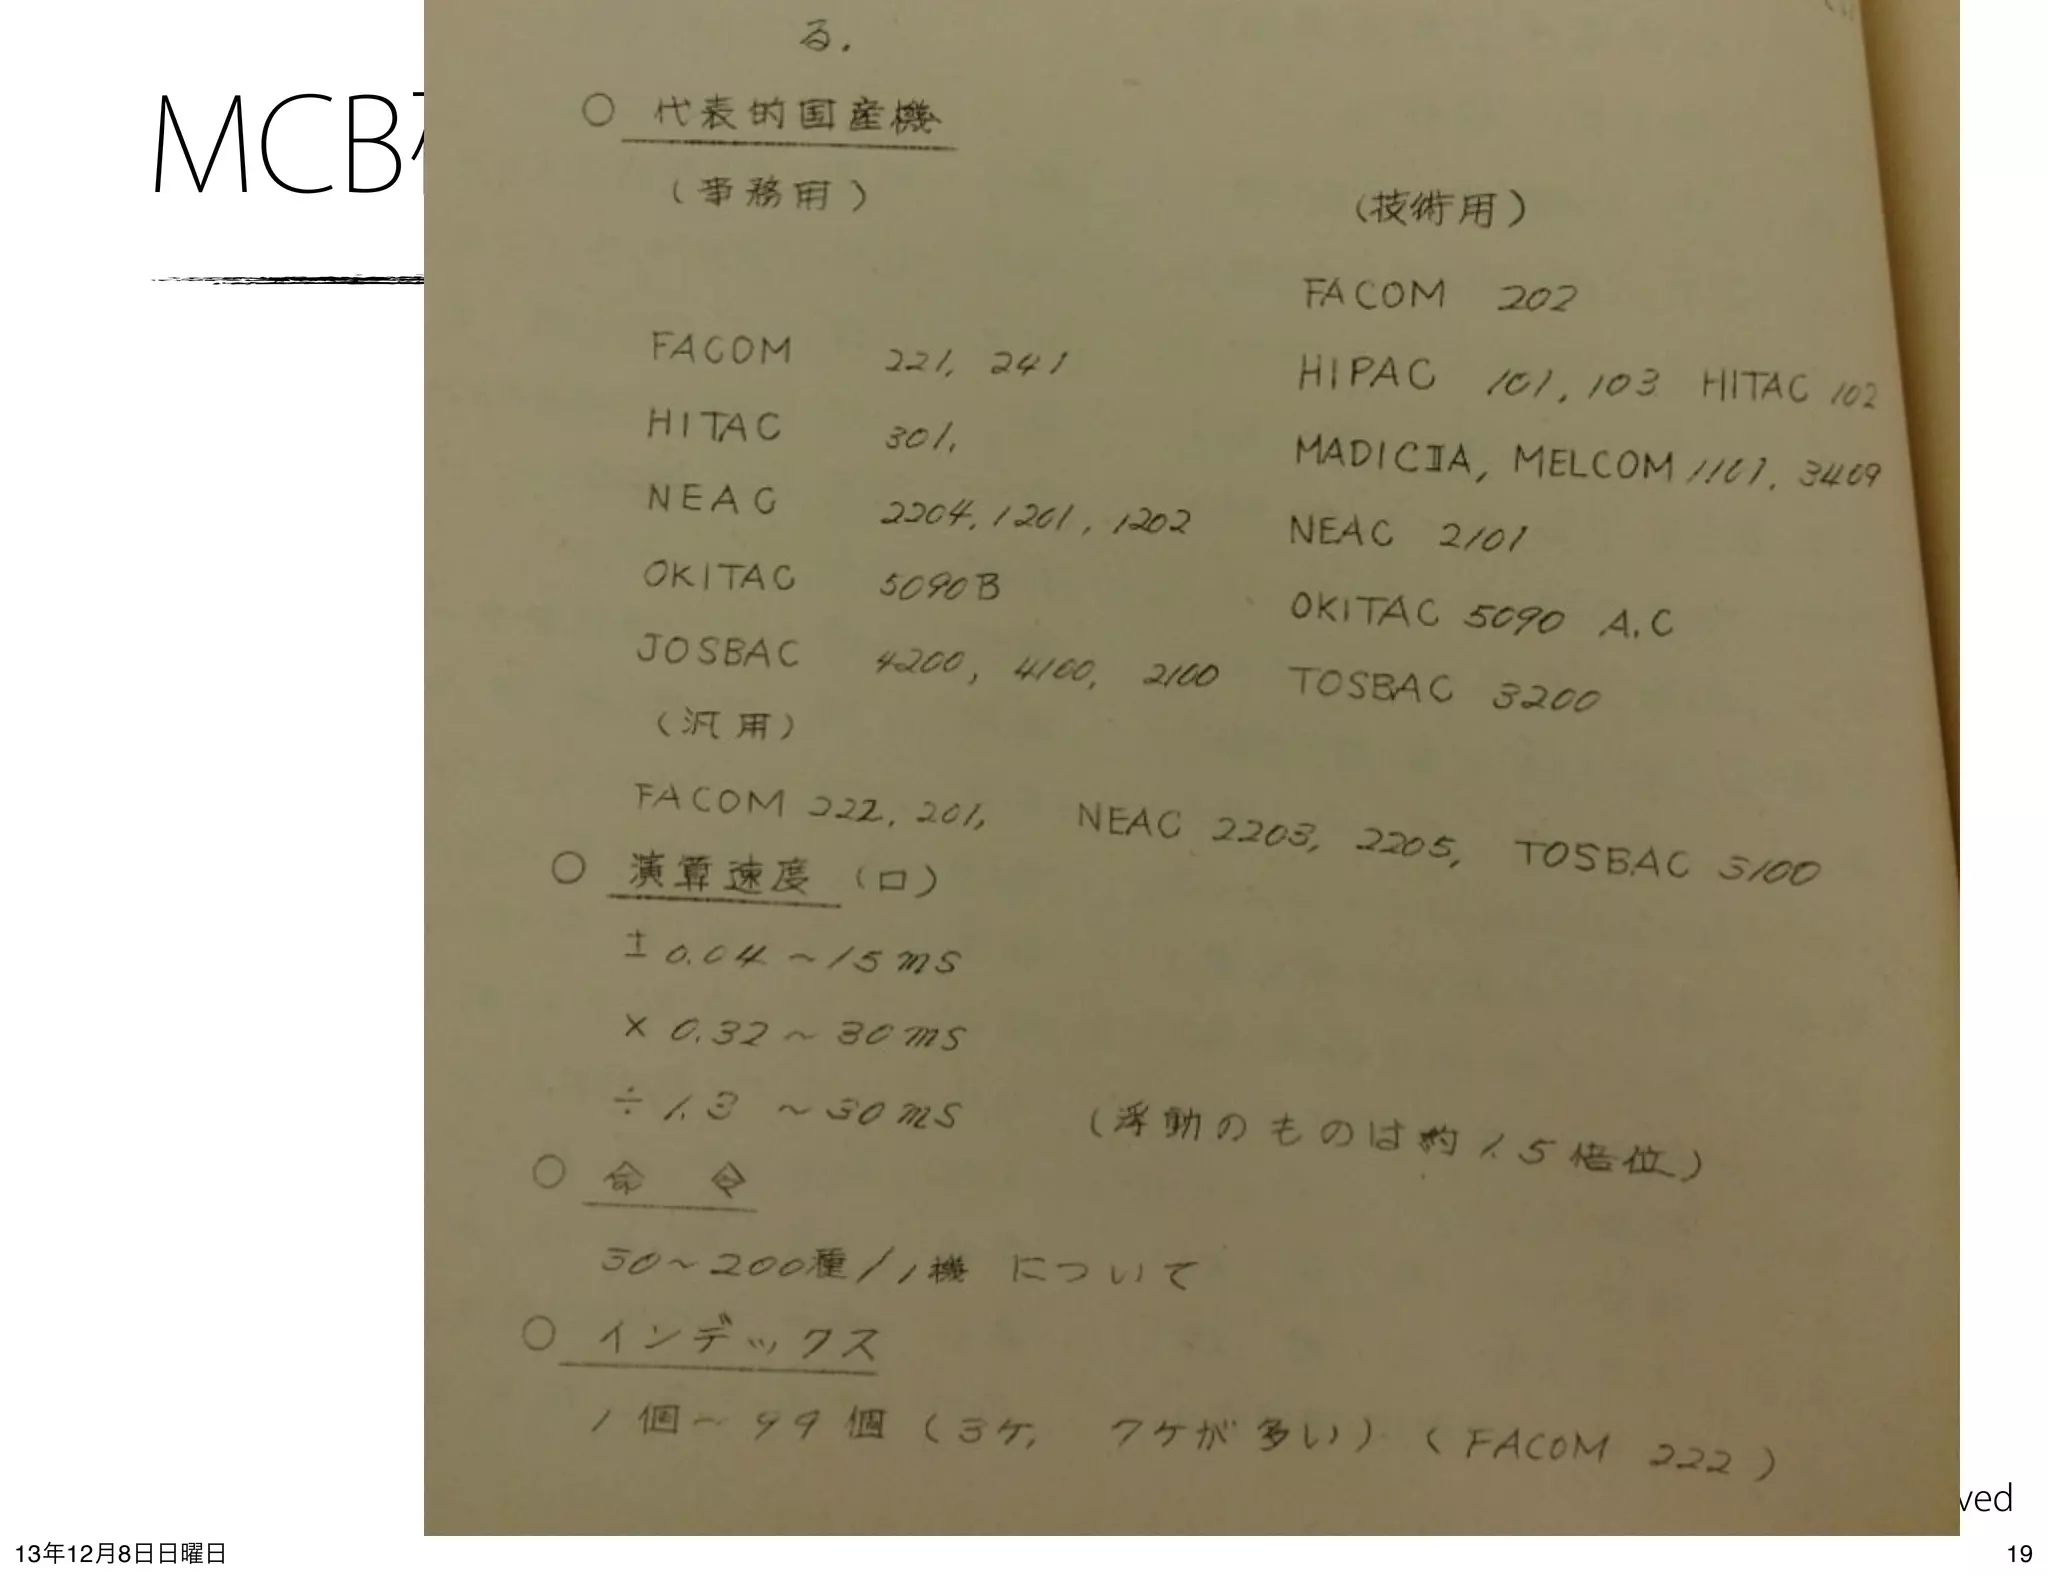 MCB
る.
○ 代表的国産機
(事務用)
(技術用)
FACOM 202
FACOM 221, 241
HIPAC 101, 103 HITAC 102
HITAC 301,
MADICⅡA, MELCOM 1101, 3409
NEAC 2204, 1201, 1202
NEAC 2101
OKITAC 5090B
OKITAC 5090 A.C
JOSBAC 4200, 4100, 2100
TOSBAC 3200
(汎用)
FACOM 222, 201, NEAC 2203, 2205, TOSBAC 3100
○ 演算速度 (ロ)
± 0.04 ~ 15 ms
× 0.32 ~ 30 ms
÷ 1.3 ~ 30 ms (浮動のものは約1.5倍位)
○ 命 令
50~200種/1機 について
○ インデックス
1個~99個 (3ケ, 7ケが多い) (FACOM 222)
ved
13年12月8日日曜日
19